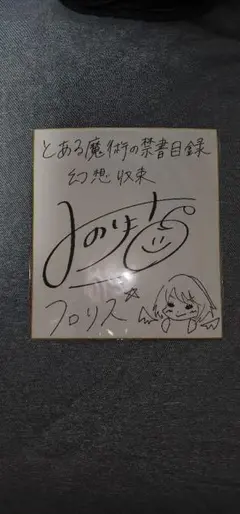 とある魔術の禁書目録
幻想収束
フロリス